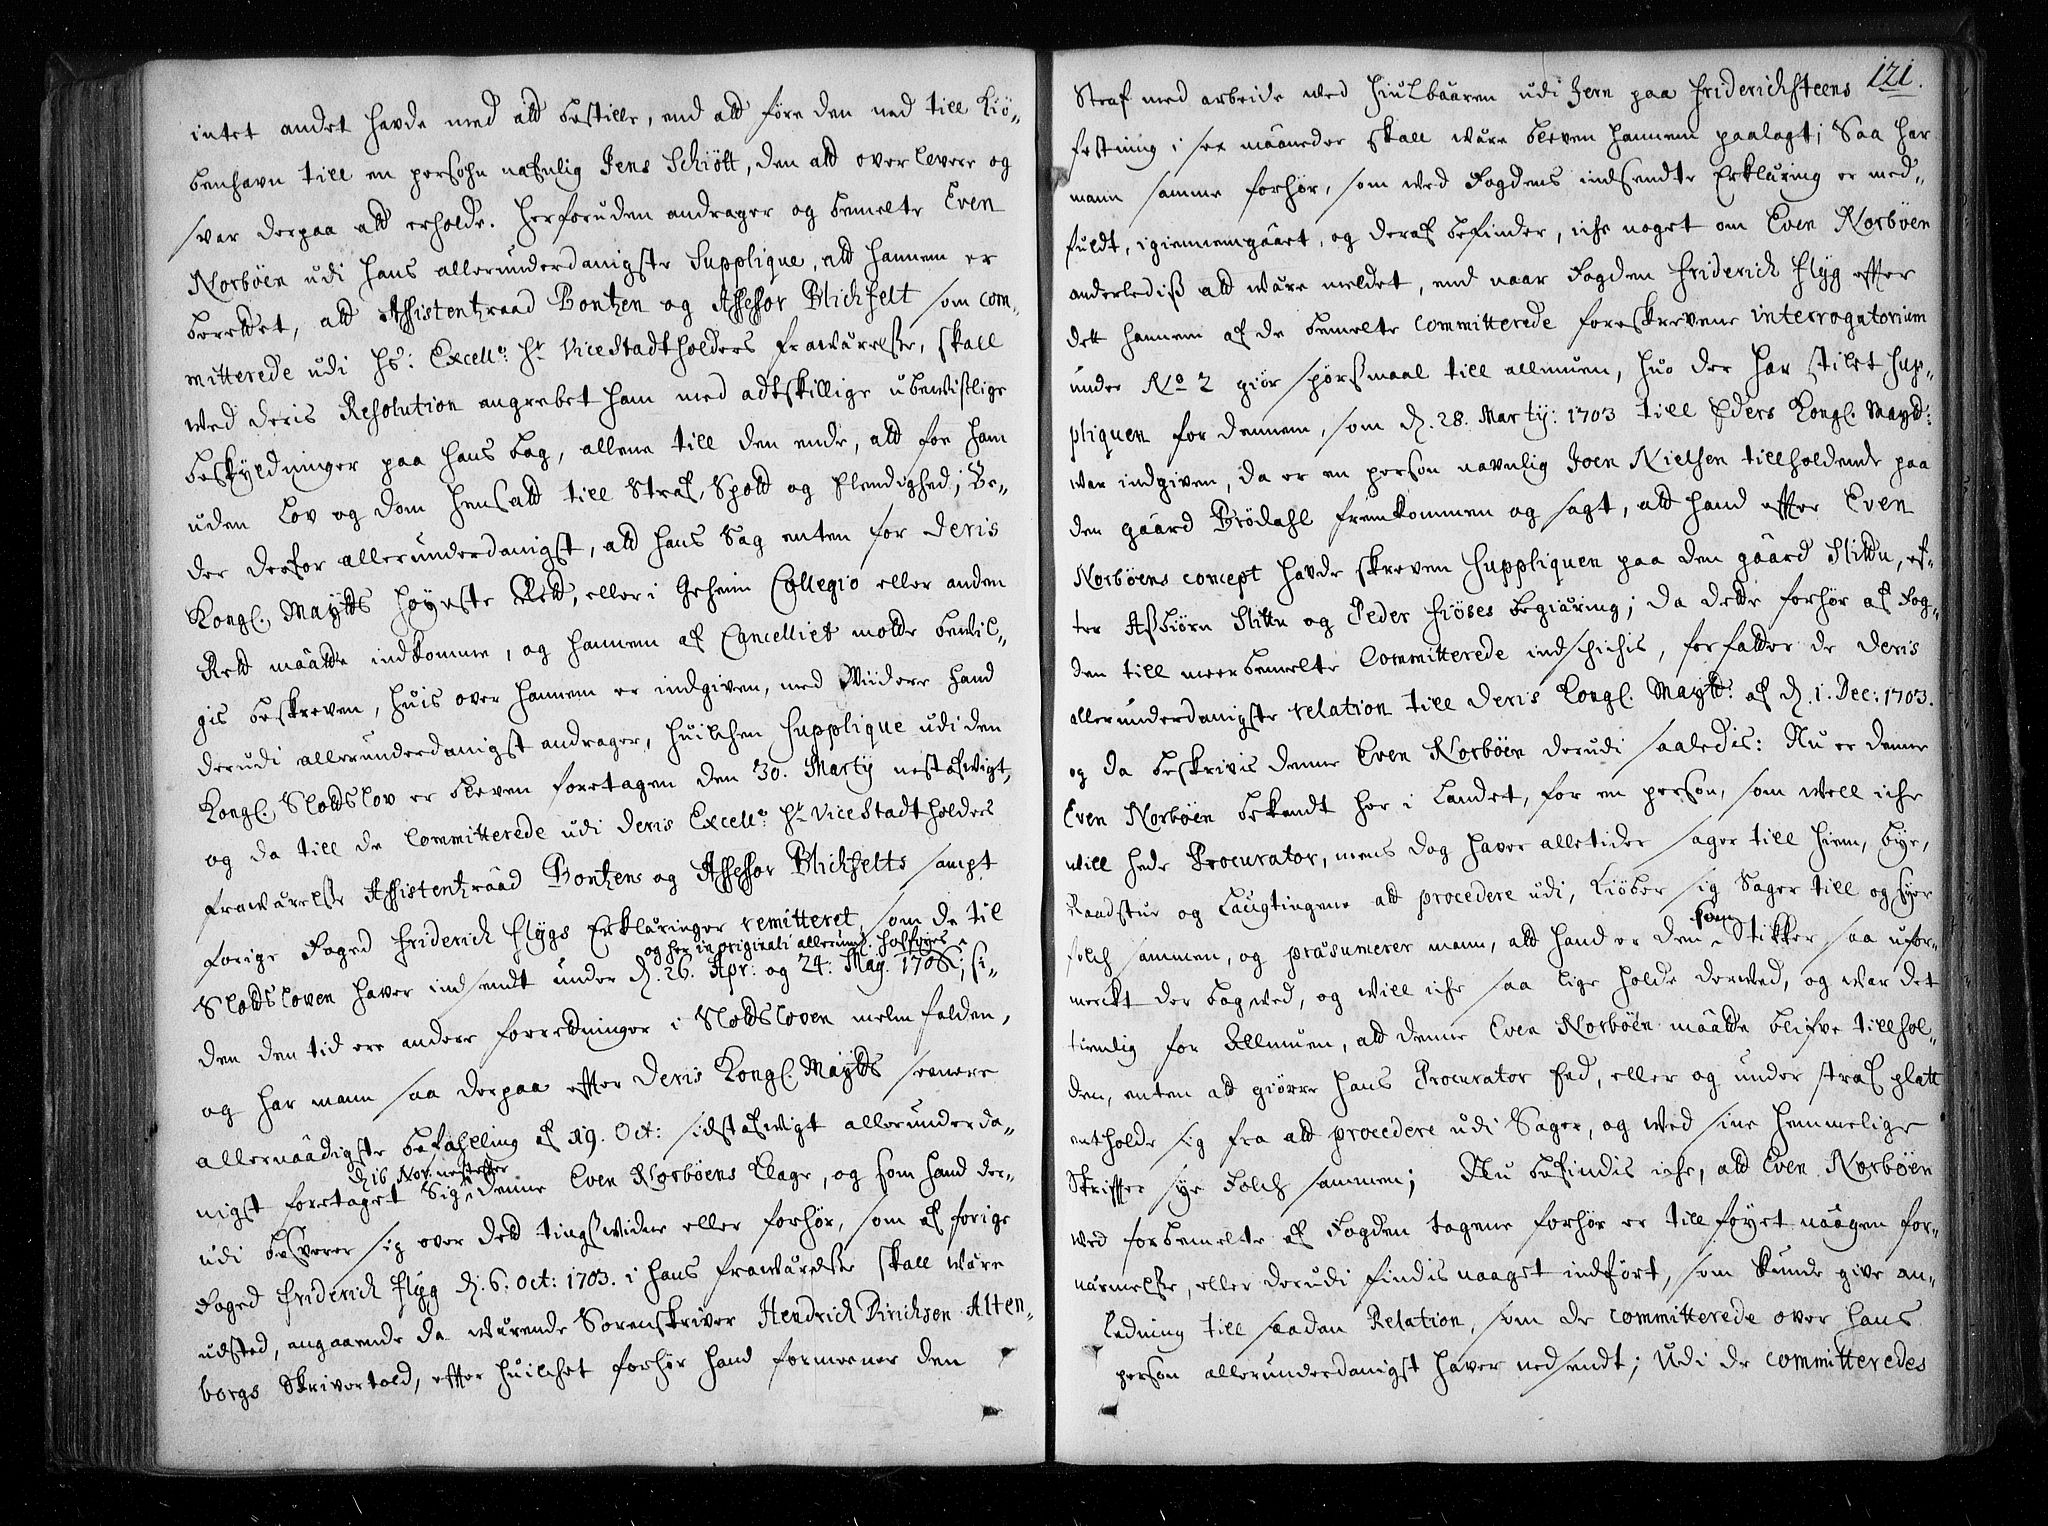 intet andet hafde med att bestille, end att føre den ned till Kiø-
benhavn till en persohn nafnlig Jens Schiött, den att overlevere og
svar derpaa att erholde. Herforuden andrager og bemelte Even
Norböen udi hans allerunderdanigste Supplique, att hannem er
berettet, att Assistentzraad Bontzen og Assessor Blichfelt som com-
mitterede udi Hs: Excell: Hr ViceStadtholders frawærelse, skall
wed deris Resolution angrebet ham med adtskillige ubewistlige
beskyldninger paa hans bag, allene till den ende, att foe ham
uden Lov og dom hensatt till Straf, Spott og Elendighed; Be-
der derfor allerunderdanigst, att hans Sag enten for Deris
Kongl. Maytts Høyeste Rett, eller i Geheim Collegio eller anden
Rett maatte indkomme, og hannem af Cancelliet motte bewil-
gis beskreven, huis over hannem er indgiven, med Wiidere hand
derudi allerunderdanigst andrager, huilchen Supplique udi den
Kongl. Slottslov er bleven foretagen den 30. Martij nestafwigt,
og da till de Committerede udi deris Excell: Hr ViceStadtholders
frawærelse Assistentzraad Bontzens og Assessor Blichfelts sampt
forige Foged Friderich Flygs Erklæringer remitteret, som de til
og her in originali allerund. hosføyes
Slottsloven haver indsendt under d. 26. Apr: og 24: May. 1706; si-
den den tid ere andere forretninger i Slottsloven melm falden,
og har mann saa derpaa effter Deris Kongl. Maytts senere
allernaadigste befahlling af 19. Oct: sidstafwigt allerunderda-
d. 16 Nov: nesteffter
nigst foretaget Sig denne Even Norböens Klage, og som hand der-
udi besverer sig over dett tingswidne eller forhør, som af forige
Foged Friderich Flyg d. 6. Oct: 1703. i hans frawærelse skall wære
udsted, angaaende da wærende Sorenskriver Hendrich Dirichsen Alten-
borgs Skrivertold, effter huilchet forhør hand formeener den
121.
Straf med arbeide wed Hiulbaaren udi Jern paa Friderichsteens
festning i sex maaneder skall wære bleven hannem paalagt; Saa har
mann samme forhør, som wed Fogdens indsendte Erklæring er med-
fuldt, igiennemgaaet, og deraf befinder, iche noget om Even Norböen
anderlediss att wære meldet, end naar Fogden Friderich Flyg effter
dett hannem af de bemelte Committerede foreskrevene interrogatorium
under No 2 giør spörssmaal till allmuen, huo der har stilet Sup-
pliquen for dennem, som d. 28. Martij: 1703 till Eders Kongl. Maytt:
war indgiven, da er en person navnlig Joen Nielssen tillholdende paa
den gaard Brödahl fremkommen og sagt, att hand effter Even
Norböens concept hafde skreven Suppliquen paa den gaard Slitte, ef-
ter Assbiörn Slitte og Peder Hiöses begiæring; da dette forhør af Fog-
den till meerbemelte Committerede indschichis, forfatter de Deris
allerunderdanigste relation till Deris Kongl. Maytt: af d. 1. Dec: 1703.
og da beskrivis denne Even Norböen derudi saaledis: Nu er denne
Even Norböen bekendt her i Landet, for en person, som well iche
will hede Procurator, mens dog haver alletider sager till Hiem, bye,
Raadstue og Laugtingene att procedere udi, kiöber sig Sager till og hyer
folch sammen, og præsumerer mann, att hand er den som Stikker saa ufor-
merckt der bagwed, og will iche saa lige holde derwed, og war det
tienlig for Allmuen, att denne Even Norböen maatte blifve tillhol-
den, enten att giørre hans Procurator Eed, eller og under straf platt
entholde sig fra att procedere udi Sager, og wed sine hemmelige
Skriffter hye Folch sammen; Nu befindis iche, att Even Norböen
wed forbemelte af Fogden tagene forhør er tillføyet naagen for-
nærmelse, eller derudi findis naaget indført, som kunde give an-
ledning till saadan Relation, som de Committerede over hans
person allerunderdanigst haver nedsendt; Udi de committeredes